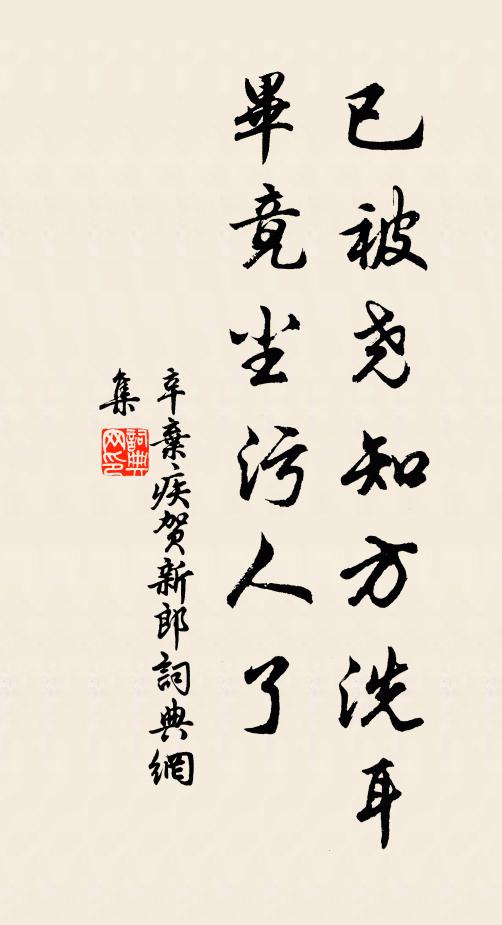 已被尧知方洗耳
畢竟尘污人了
辛棄疾贺新郎詞典網
集
詞典网印